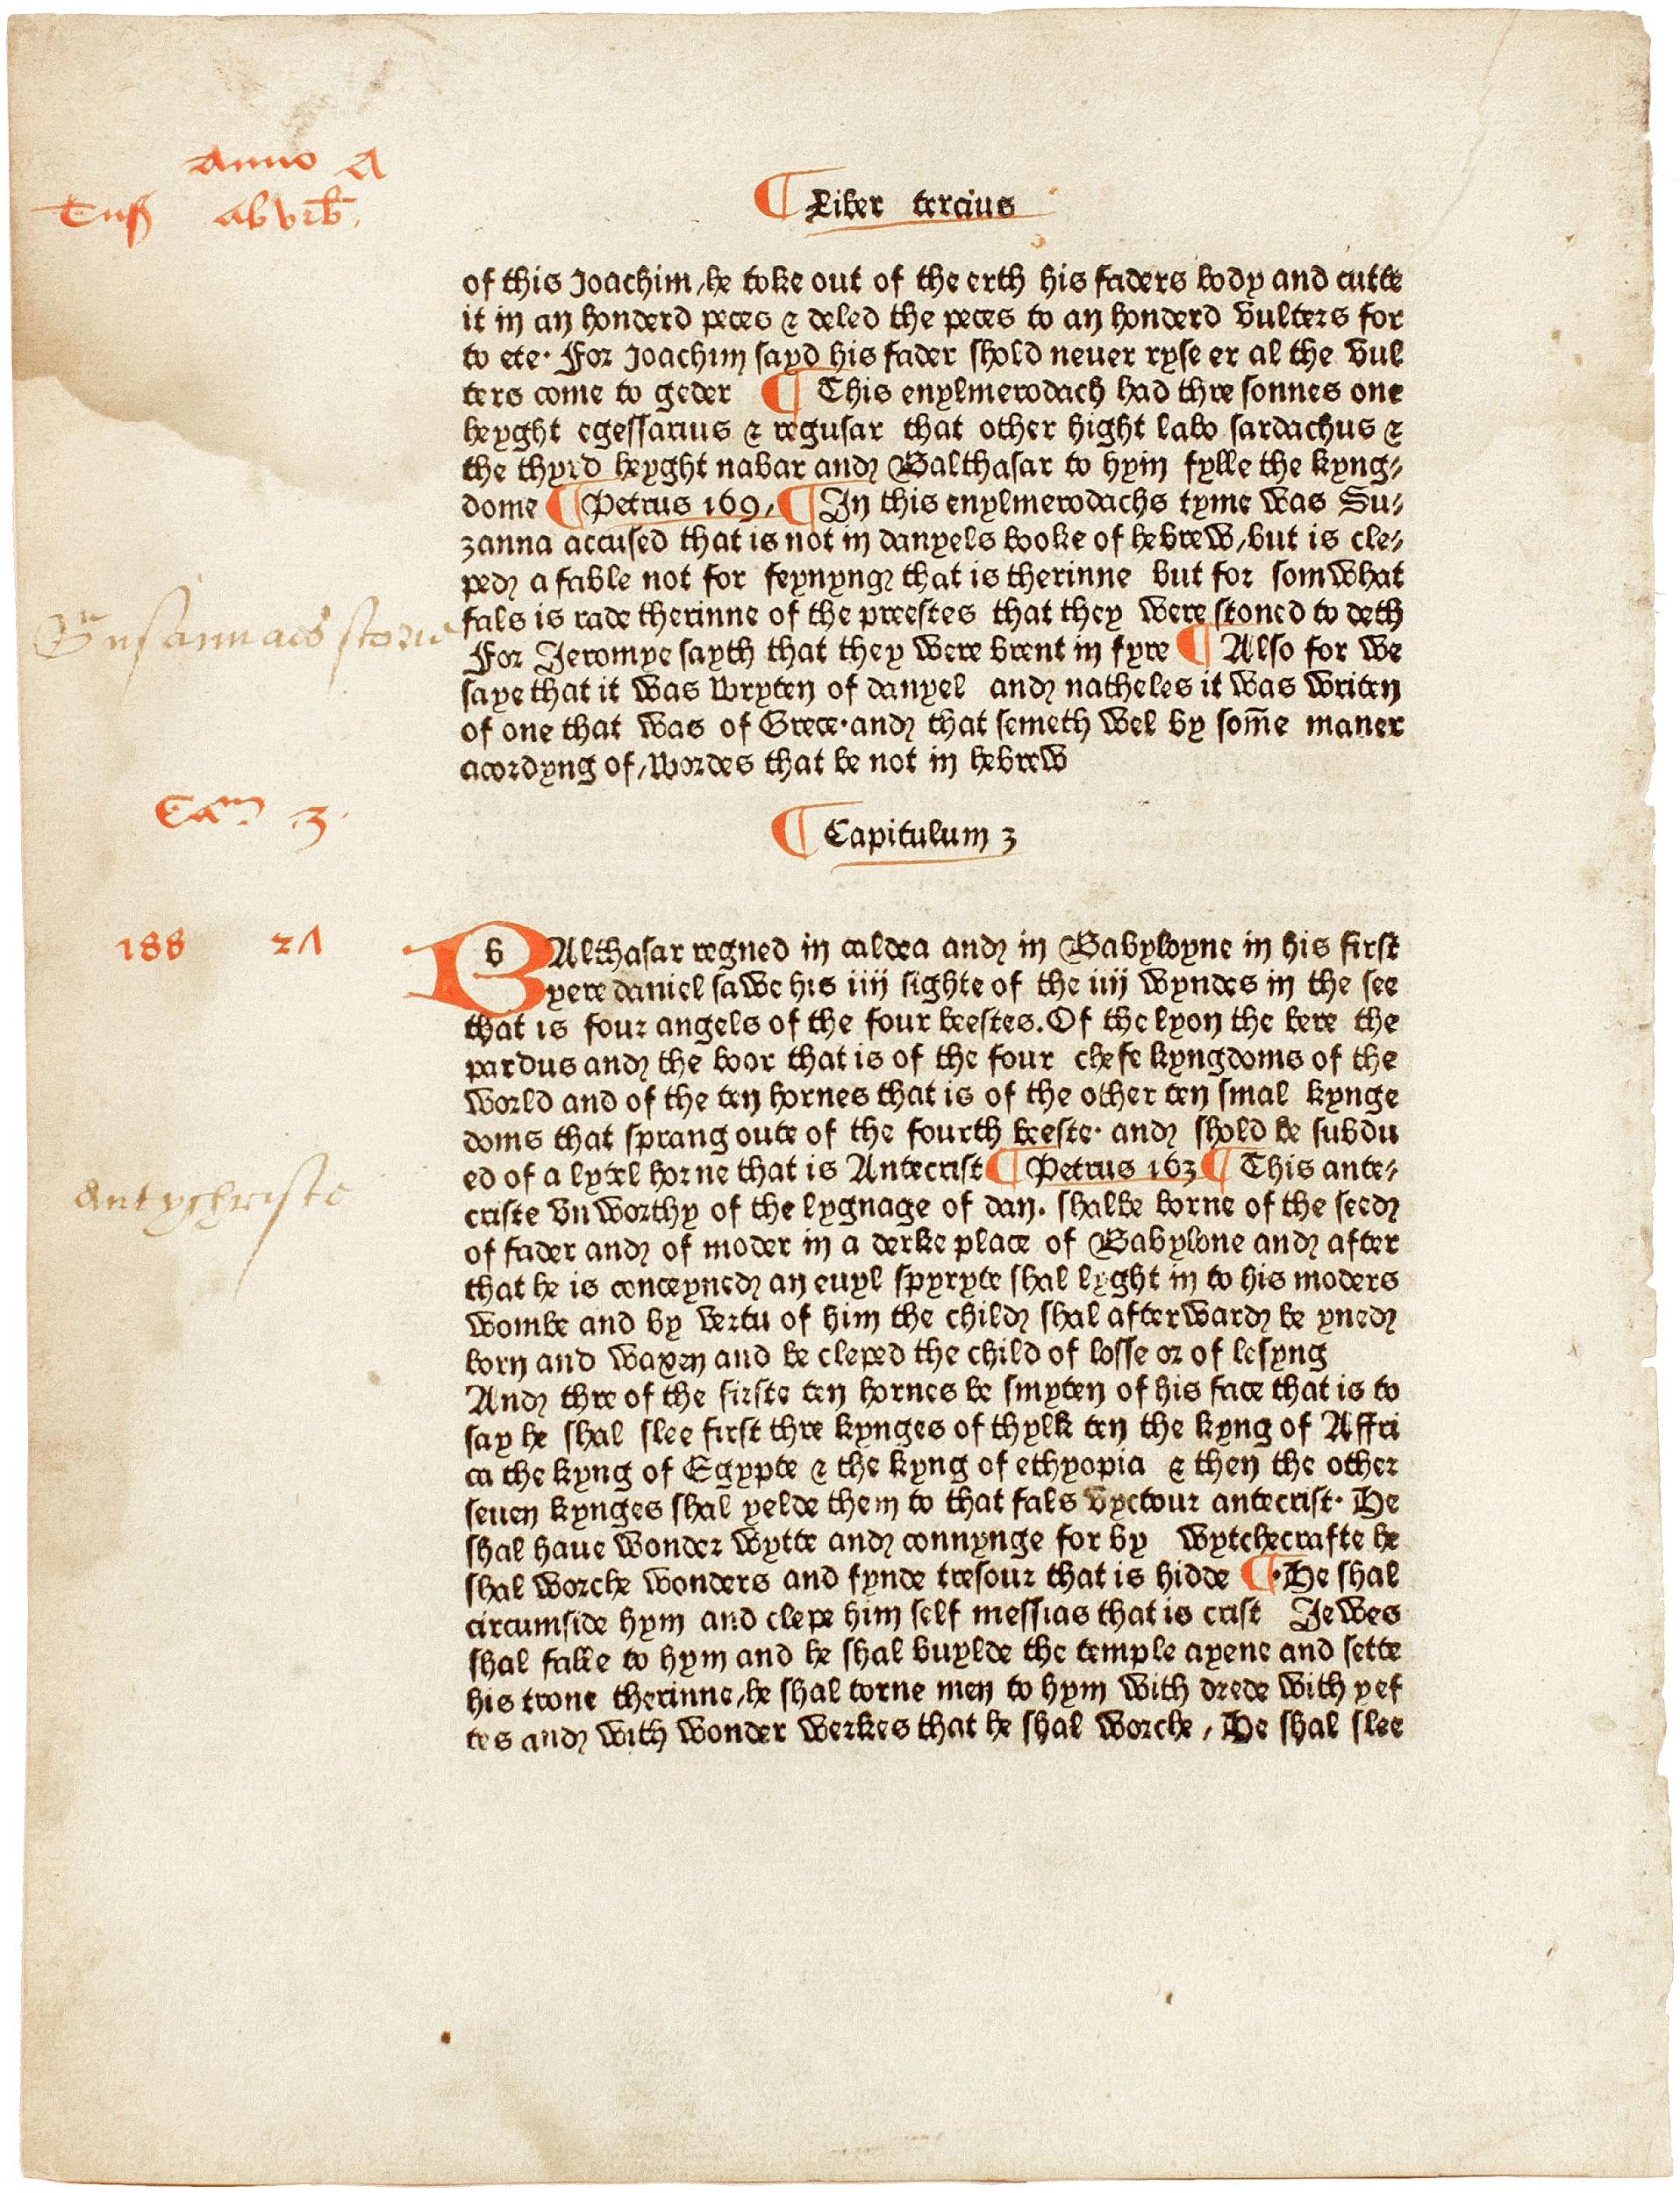 Anno A
Liber tercius
of this Joachim, he toke out of the erth his faders body and cutte
it in an honderd peces & deled the peces to an honderd vulters for
to ete. For Joachim sayd his fader shold neuer ryse er al the vul
ters come to geder ¶ This enylmerodach had thre sonnes one
heyght egessarius & regusar that other hight labo sardachus &
the thyrd heyght nabar and Balthasar to hym fylle the kyng⸗
dome ¶ Petrus 169, ¶ In this enylmerodachs tyme was Su⸗
zanna accused that is not in danyels booke of hebrew, but is cle⸗
ped a fable not for feynyng that is therinne but for somwhat
fals is rade therinne of the preestes that they were stoned to deth
For Jeromye sayth that they were brent in fyre ¶ Also for we
saye that it was wryten of danyel and natheles it was writen
of one that was of Grece. and that semeth wel by som̄e maner
acordyng of, wordes that be not in hebrew
¶ Capitulum 3
188 21
BAlthasar regned in caldea and in Babyloyne in his first
yere daniel sawe his iiij sighte of the iiij wyndes in the see
that is four angels of the four beestes. Of the lyon the bere the
pardus and the boor that is of the four chefe kyngdoms of the
world and of the ten hornes that is of the other ten smal kynge
doms that sprang oute of the fourth beeste. and shold be subdu
ed of a lytel horne that is Antecrist ¶ Petrus 163 ¶ This ante⸗
criste vnworthy of the lygnage of dan. shalbe borne of the seed
of fader and of moder in a derke place of Babylone and after
that he is conceyned an euyl spyryte shal lyght in to his moders
wombe and by vertu of him the child shal afterward be yned
born and waxen and be cleped the child of losse or of lesyng
And thre of the firste ten hornes be smyten of his face that is to
say he shal slee first thre kynges of thylk ten the kyng of Affri
ca the kyng of Egypte & the kyng of ethyopia & then the other
seuen kynges shal yelde them to that fals vyctour antecrist. He
shal haue wonder wytte and connynge for by wytchecrafte he
shal worche wonders and fynde tresour that is hidde ¶ . He shal
circumside hym and clepe him self messias that is crist Jewes
shal falle to hym and he shal buylde the temple ayene and sette
his trone therinne, he shal torne men to hym with drede with yef
tes and with wonder werkes that he shal worche, He shal slee